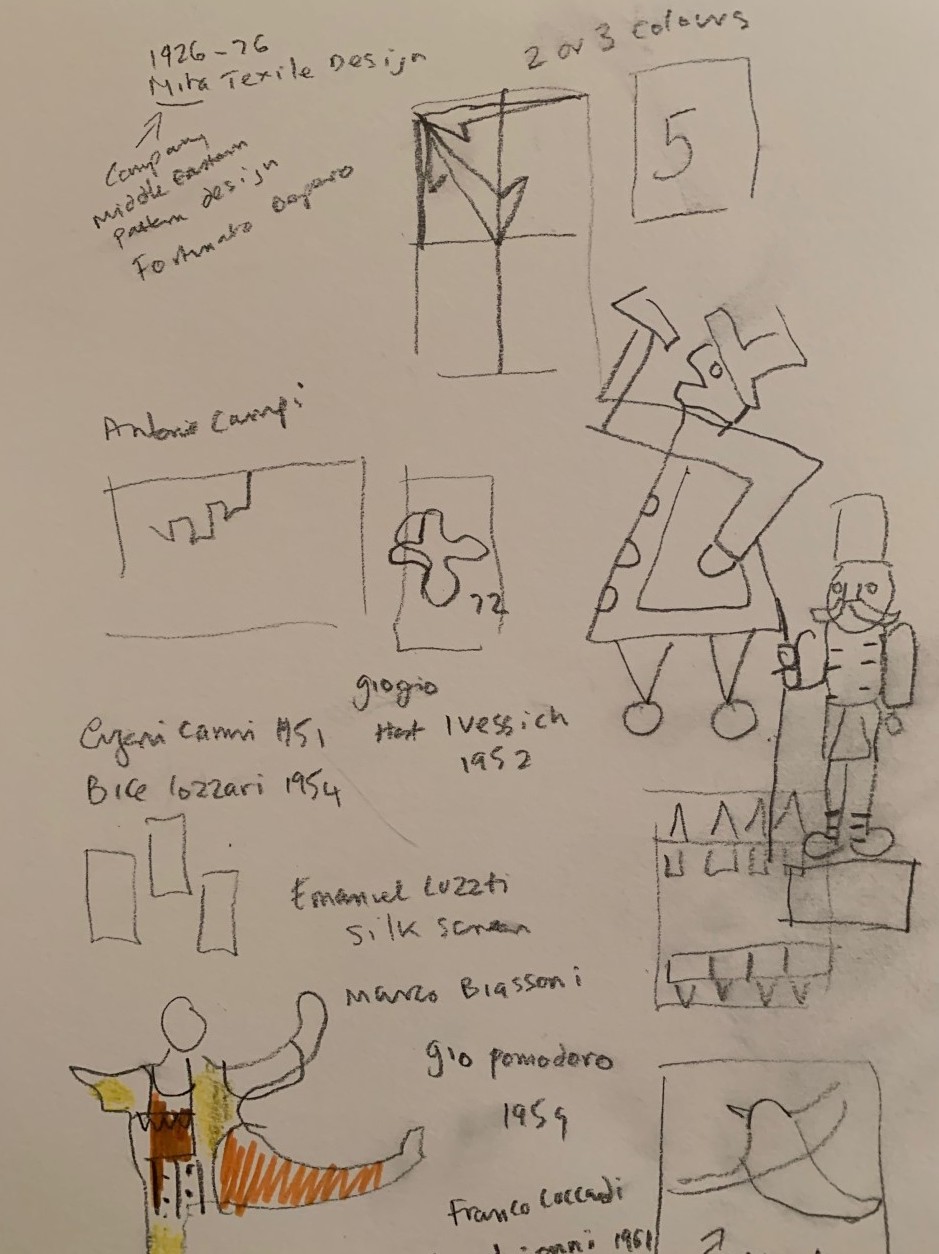 1926-76
Mita Texile Design
2 or 3 colours
5
Company
Middle Eastern
pattern design
Fortunato Depero
Antonio Campi
72
giogio
Ivessich
1952
Eugeni Carmi 1951
Bice Lozzari 1954
Emanuel Luzzti
Silk screen
Marco Biassoni
gio pomodoro
1959
Franco
1961